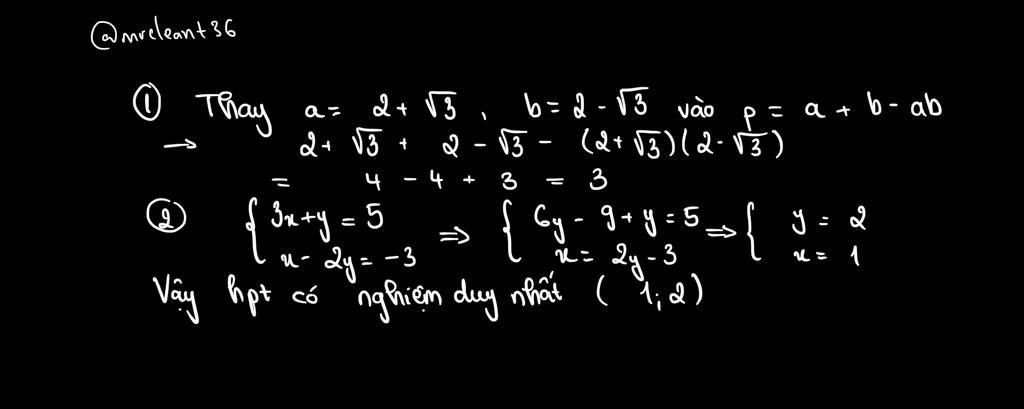 @mrcleant36
① Thay a = 2 + √3 , b = 2 - √3 vào p = a + b - ab
→ 2 + √3 + 2 - √3 - (2 + √3)(2 - √3)
= 4 - 4 + 3 = 3
② { 3x + y = 5 ⇒ { 6y - 9 + y = 5 ⇒ { y = 2
x - 2y = -3 x = 2y - 3 x = 1
Vậy hpt có nghiệm duy nhất ( 1; 2 )